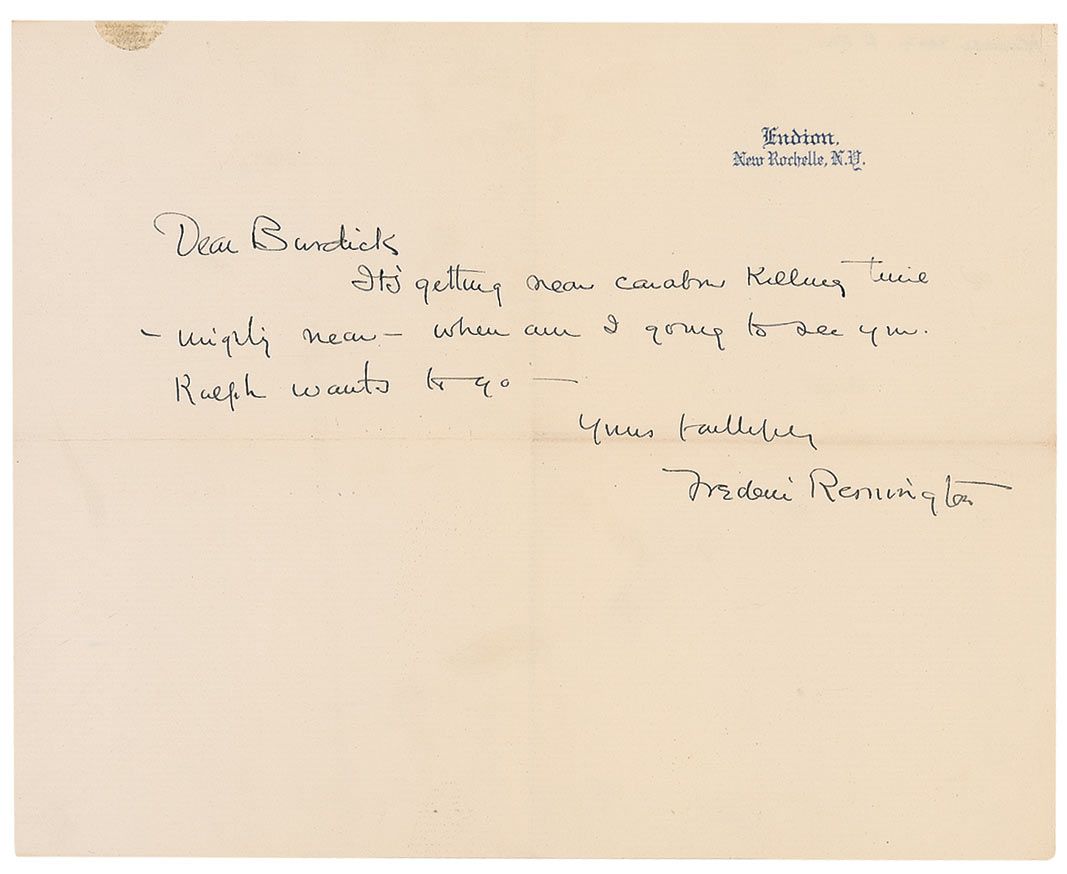 Endion,
New Rochelle, N.Y.
Dear Burdick
It's getting near carabou killing time
- mighty near - when am I going to see you.
Ralph wants to go —
Yours faithfully
Frederic Remington